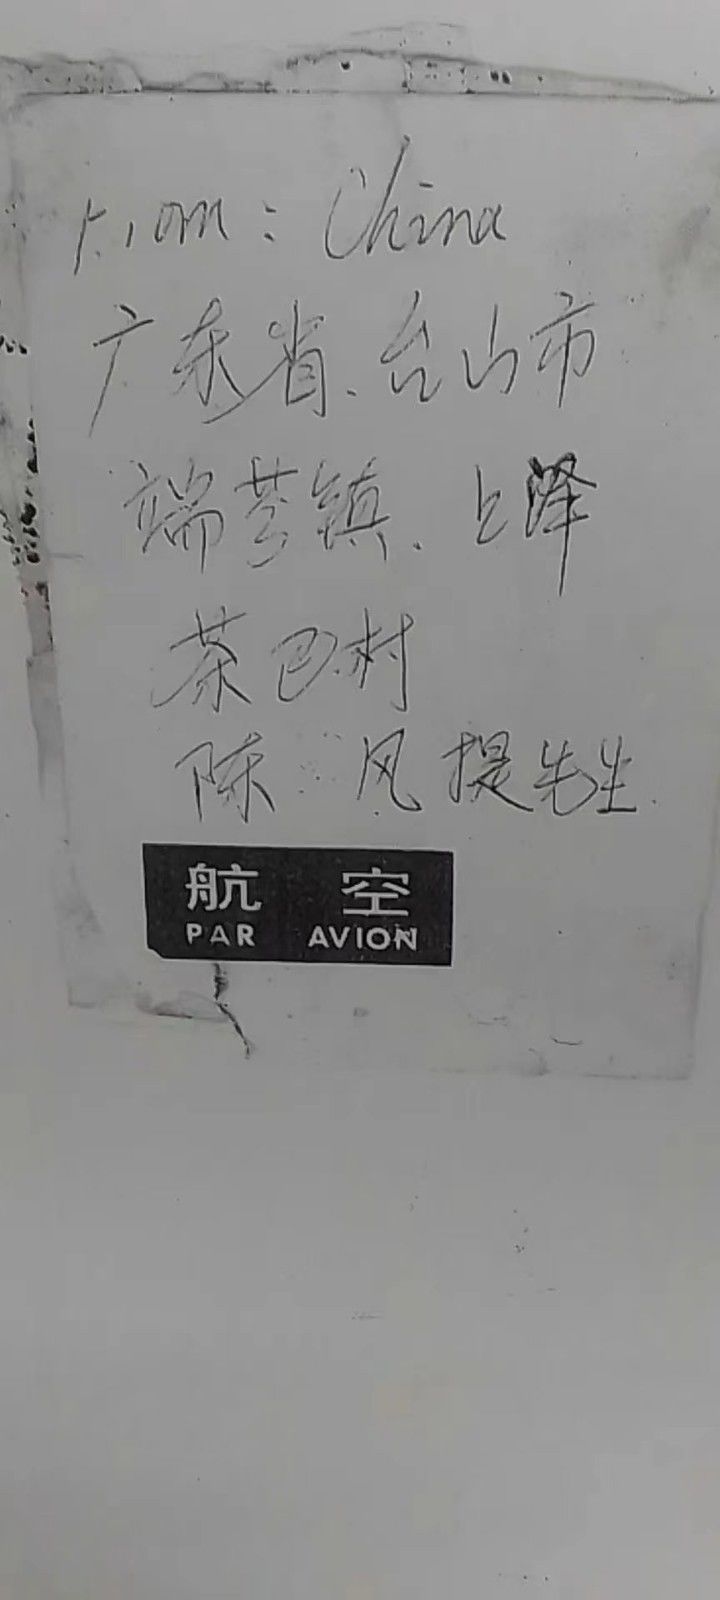 From: China
广东省.台山市
端芬镇.上泽
茶巴村
陈 风提先生
航 空
PAR AVION